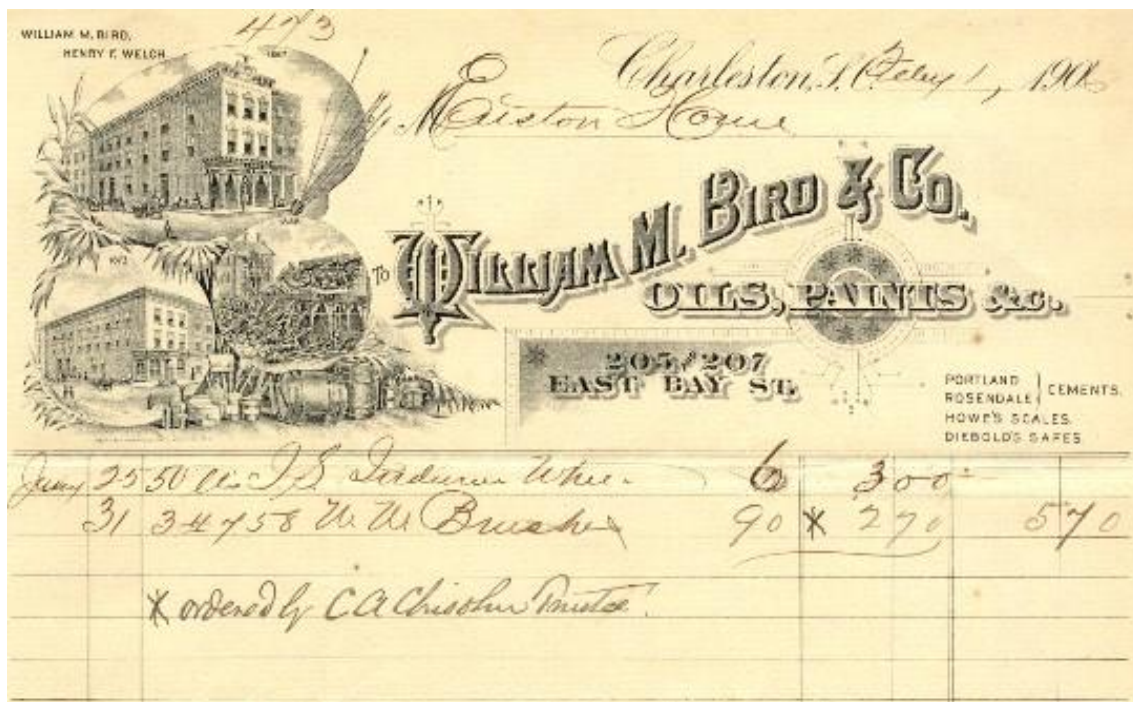 WILLIAM M. BIRD,
HENRY F. WELCH
473
Charleston, S.C. Feby 1, 190
Enston Home
To WILLIAM M. BIRD & CO.
OILS, PAINTS &c.
205/207
EAST BAY ST.
PORTLAND
ROSENDALE } CEMENTS.
HOWE'S SCALES.
DIEBOLD'S SAFES
Jany 25 50 6 300
31 3 4758 W. W. Brushes 90 X 270 570
X ordered by C A Chisolm Trustee.